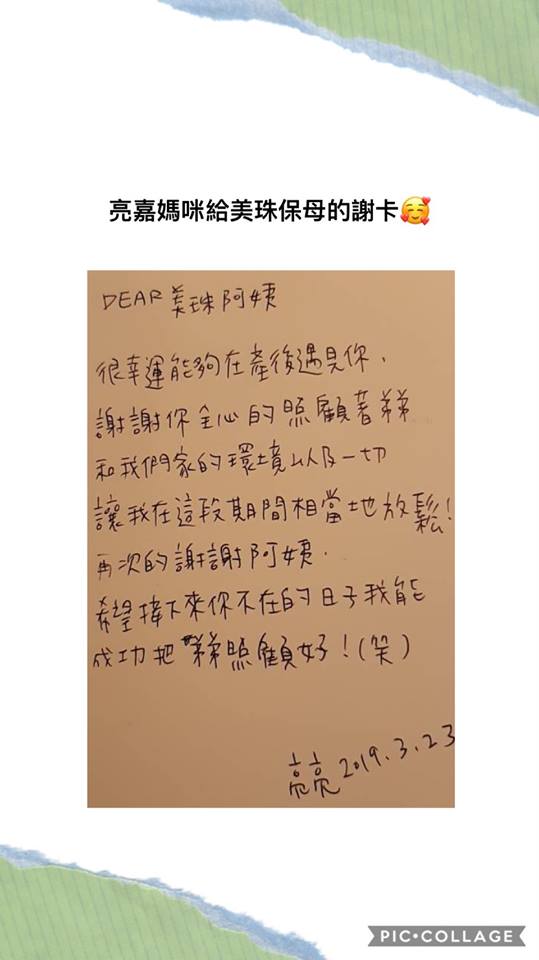 亮嘉媽咪給美珠保母的謝卡🥰
DEAR 美珠阿姨
很幸運能夠在產後遇見你，
謝謝你全心的照顧著弟弟
和我們家的環境以及一切
讓我在這段期間相當地放鬆!
再次的謝謝阿姨.
希望接下來你不在的日子我能
成功把弟弟照顧好！(笑)
亮亮 2019.3.23
PIC•COLLAGE